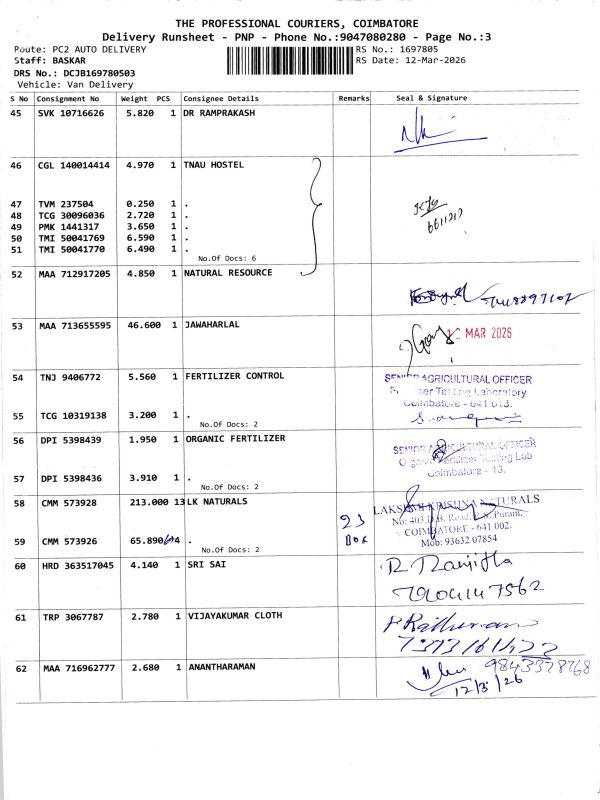 THE PROFESSIONAL COURIERS, COIMBATORE
Delivery Runsheet - PNP - Phone No.:9047080280 - Page No.:3
Route: PC2 AUTO DELIVERY RS No.: 1697805
Staff: BASKAR RS Date: 12-Mar-2026
DRS No.: DCJB169780503
Vehicle: Van Delivery
S No Consignment No Weight PCS Consignee Details Remarks Seal & Signature
45 SVK 10716626 5.820 1 DR RAMPRAKASH
46 CGL 140014414 4.970 1 TNAU HOSTEL
47 TVM 237504 0.250 1 .
48 TCG 30096036 2.720 1 .
49 PMK 1441317 3.650 1 .
50 TMI 50041769 6.590 1 .
51 TMI 50041770 6.490 1 .
No.Of Docs: 6
52 MAA 712917205 4.850 1 NATURAL RESOURCE
53 MAA 713655595 46.600 1 JAWAHARLAL
MAR 2026
54 TNJ 9406772 5.560 1 FERTILIZER CONTROL
SENIOR AGRICULTURAL OFFICER
Testing Laboratory
Coimbatore - 641 013.
55 TCG 10319138 3.200 1 .
No.Of Docs: 2
56 DPI 5398439 1.950 1 ORGANIC FERTILIZER
SENIOR AGRICULTURAL OFFICER
Organic Fertilizer Testing Lab
Coimbatore - 13.
57 DPI 5398436 3.910 1 .
No.Of Docs: 2
58 CMM 573928 213.000 13 LK NATURALS
23
Box
LAKSHMI KRISHNA NATURALS
No: 403, D.B. Road, R.S. Puram,
COIMBATORE - 641 002.
Mob: 93632 07854
59 CMM 573926 65.890 4 .
No.Of Docs: 2
60 HRD 363517045 4.140 1 SRI SAI
R Ranjitha
61 TRP 3067787 2.780 1 VIJAYAKUMAR CLOTH
62 MAA 716962777 2.680 1 ANANTHARAMAN
12/3/26